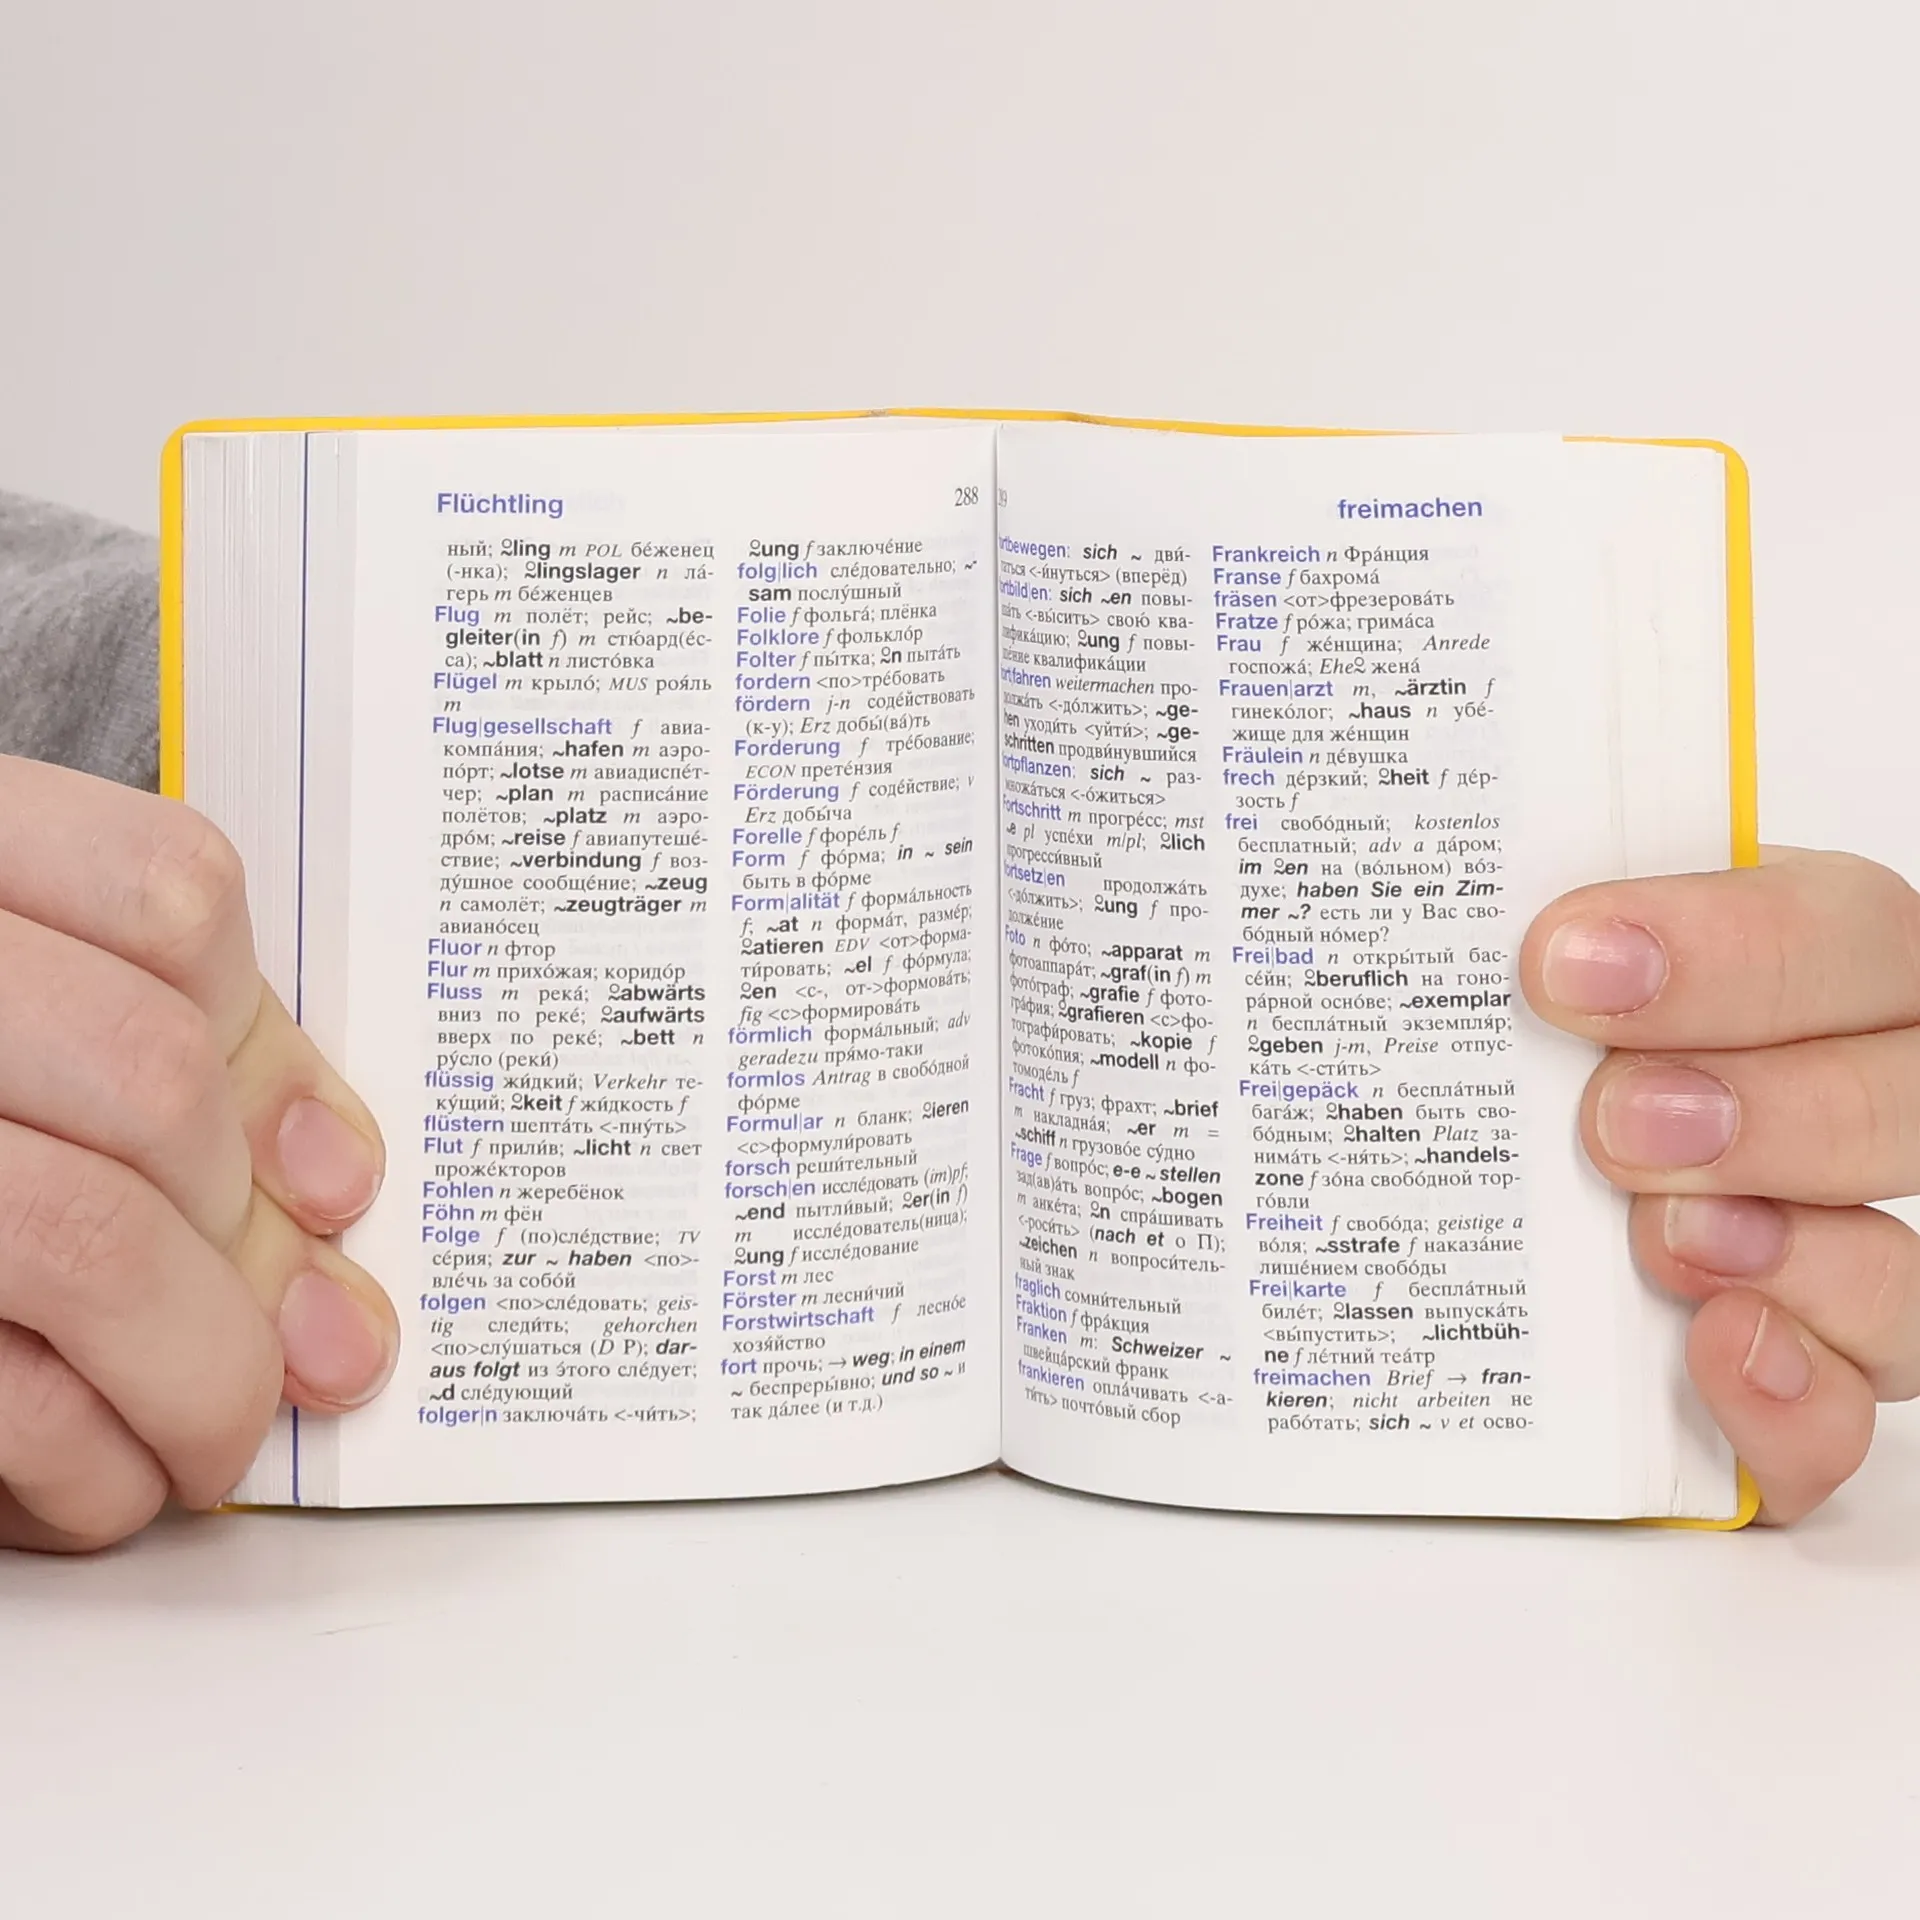 Flüchtling
288
ный; ⁓ling m POL бе́женец
(-нка); ⁓lingslager n ла́-
герь m бе́женцев
Flug m полёт; рейс; ~be-
gleiter(in f) m стю́ард(е́с-
са); ~blatt n листо́вка
Flügel m крыло́; MUS роя́ль
m
Flug|gesellschaft f авиа-
компа́ния; ~hafen m аэро-
по́рт; ~lotse m авиадиспе́т-
чер; ~plan m расписа́ние
полётов; ~platz m аэро-
дро́м; ~reise f авиапутеше́-
ствие; ~verbindung f воз-
ду́шное сообще́ние; ~zeug
n самолёт; ~zeugträger m
авиано́сец
Fluor n фтор
Flur m прихо́жая; коридо́р
Fluss m река́; ⁓abwärts
вниз по реке́; ⁓aufwärts
вверх по реке́; ~bett n
ру́сло (реки́)
flüssig жи́дкий; Verkehr те-
ку́щий; ⁓keit f жи́дкость f
flüstern шепта́ть <-пну́ть>
Flut f прили́в; ~licht n свет
прожекторов
Fohlen n жеребёнок
Föhn m фен
Folge f (по)сле́дствие; TV
се́рия; zur ~ haben <по>-
вле́чь за собо́й
folgen <по>сле́довать; geis-
tig следи́ть; gehorchen
<по>слу́шаться (D Р); dar-
aus folgt из э́того сле́дует;
~d сле́дующий
folger|n заключа́ть <-чи́ть>;
⁓ung f заключе́ние
folg|lich сле́довательно; ~-
sam послу́шный
Folie f фольга́; плёнка
Folklore f фолькло́р
Folter f пы́тка; ⁓n пыта́ть
fordern <по>тре́бовать
fördern j-n соде́йствовать
(к-у); Erz добы́(ва́)ть
Forderung f тре́бование;
ECON прете́нзия
Förderung f соде́йствие; v
Erz добы́ча
Forelle f форе́ль f
Form f фо́рма; in ~ sein
быть в фо́рме
Form|alität f форма́льность
f; ~at n форма́т, разме́р;
⁓atieren EDV <от>форма-
ти́ровать; ~el f фо́рмула;
⁓en <с-, от->формова́ть;
fig <с>формирова́ть
förmlich форма́льный; adv
geradezu пря́мо-таки
formlos Antrag в свобо́дной
фо́рме
Formul|ar n бланк; ⁓ieren
<с>формули́ровать
forsch реши́тельный
forsch|en иссле́довать (im)pf;
~end пытли́вый; ⁓er(in f)
m иссле́дователь(ница);
⁓ung f иссле́дование
Forst m лес
Förster m лесни́чий
Forstwirtschaft f лесно́е
хозя́йство
fort прочь; → weg; in einem
~ беспреры́вно; und so ~ и
так да́лее (и т.д.)
freimachen
sich ~ дви́-
(вперёд)
sich ~en повы-
<-вы́сить> свою́ ква-
⁓ung f повы-
квалифика́ции
weitermachen про-
<-до́лжить>; ~ge-
уходи́ть <уйти́>; ~ge-
schritten продви́нувшийся
sich ~ раз-
<-о́житься>
Fortschritt m прогре́сс; mst
~e pl успе́хи m/pl; ⁓lich
прогресси́вный
продолжа́ть
<-до́лжить>; ⁓ung f про-
Foto n фо́то; ~apparat m
фотоаппара́т; ~graf(in f) m
фото́граф; ~grafie f фото-
гра́фия; ⁓grafieren <с>фо-
тографи́ровать; ~kopie f
фотоко́пия; ~modell n фо-
томоде́ль f
Fracht f груз; фрахт; ~brief
m накладна́я; ~er m =
~schiff n грузово́е су́дно
Frage f вопро́с; e-e ~ stellen
зад(ав)а́ть вопро́с; ~bogen
m анке́та; ⁓n спра́шивать
<-роси́ть> (nach et о П);
~zeichen n вопроси́тель-
ный знак
fraglich сомни́тельный
Fraktion f фра́кция
Franken m: Schweizer ~
швейца́рский франк
frankieren опла́чивать <-а-
ти́ть> почто́вый сбор
Frankreich n Фра́нция
Franse f бахрома́
fräsen <от>фрезерова́ть
Fratze f ро́жа; грима́са
Frau f же́нщина; Anrede
госпожа́; Ehe⁓ жена́
Frauen|arzt m, ~ärztin f
гинеко́лог; ~haus n убе́-
жище для же́нщин
Fräulein n де́вушка
frech де́рзкий; ⁓heit f де́р-
зость f
frei свобо́дный; kostenlos
беспла́тный; adv a да́ром;
im ⁓en на (во́льном) во́з-
духе; haben Sie ein Zim-
mer ~? есть ли у Вас сво-
бо́дный но́мер?
Frei|bad n откры́тый бас-
се́йн; ⁓beruflich на гоно-
ра́рной осно́ве; ~exemplar
n беспла́тный экземпля́р;
⁓geben j-m, Preise отпус-
ка́ть <-сти́ть>
Frei|gepäck n беспла́тный
бага́ж; ⁓haben быть сво-
бо́дным; ⁓halten Platz за-
нима́ть <-ня́ть>; ~handels-
zone f зо́на свобо́дной тор-
го́вли
Freiheit f свобо́да; geistige a
во́ля; ~sstrafe f наказа́ние
лише́нием свобо́ды
Frei|karte f беспла́тный
биле́т; ⁓lassen выпуска́ть
<вы́пустить>; ~lichtbüh-
ne f ле́тний теа́тр
freimachen Brief → fran-
kieren; nicht arbeiten не
рабо́тать; sich ~ v et осво-